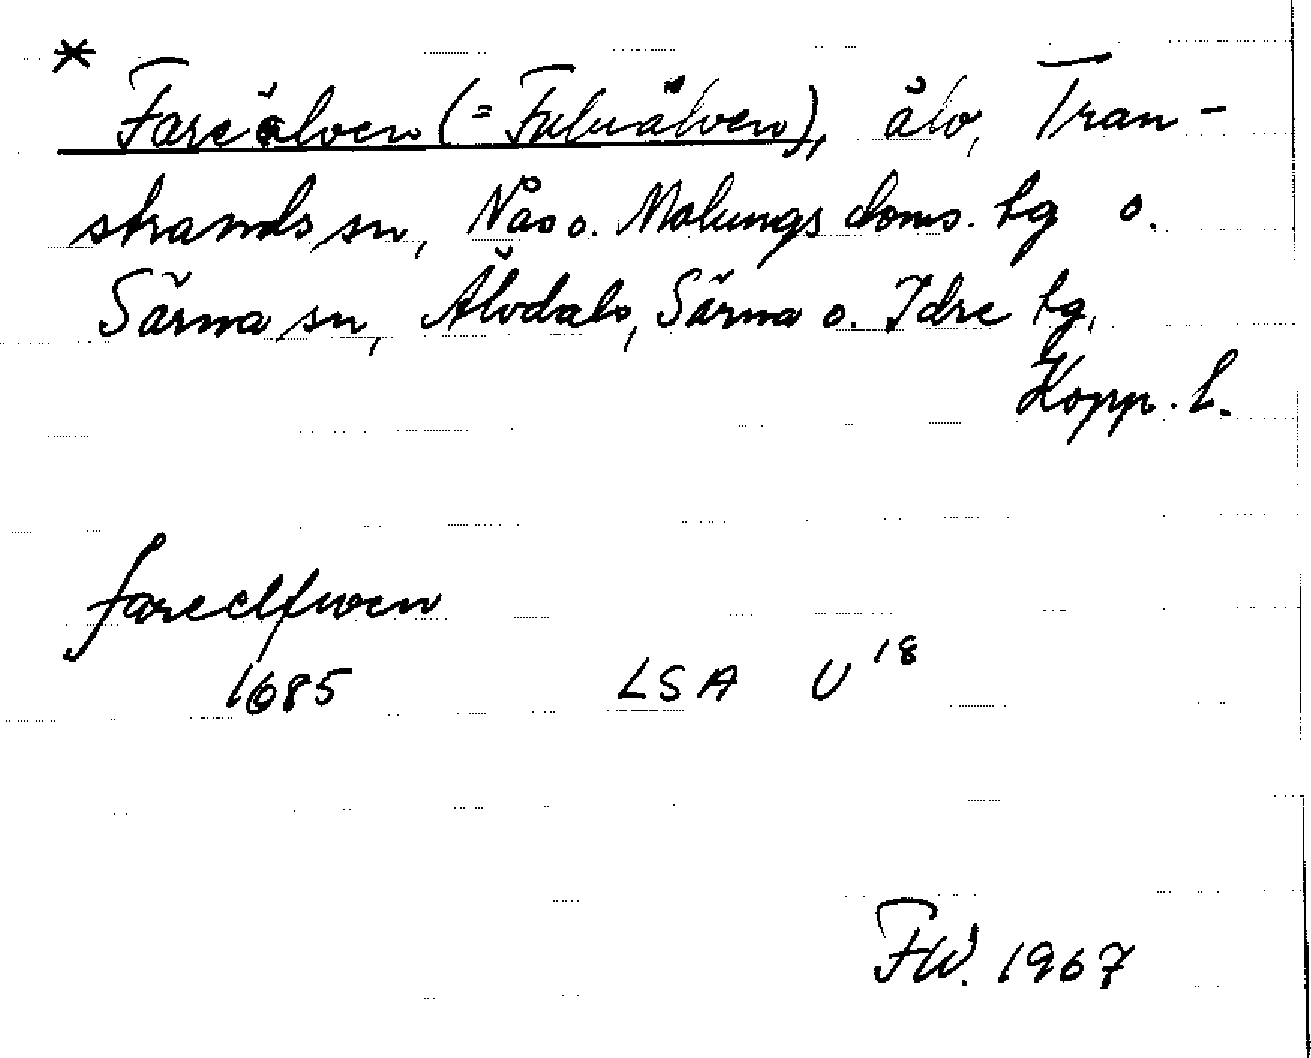 *
Fareälven (= Fuluälven), älv, Tran-
strands sn, Nås o. Malungs doms. tg o.
Särna sn, Älvdals, Särna o. Idre tg,
Kopp. l.
fareelfwen
1685 LSA U 18
FW. 1967